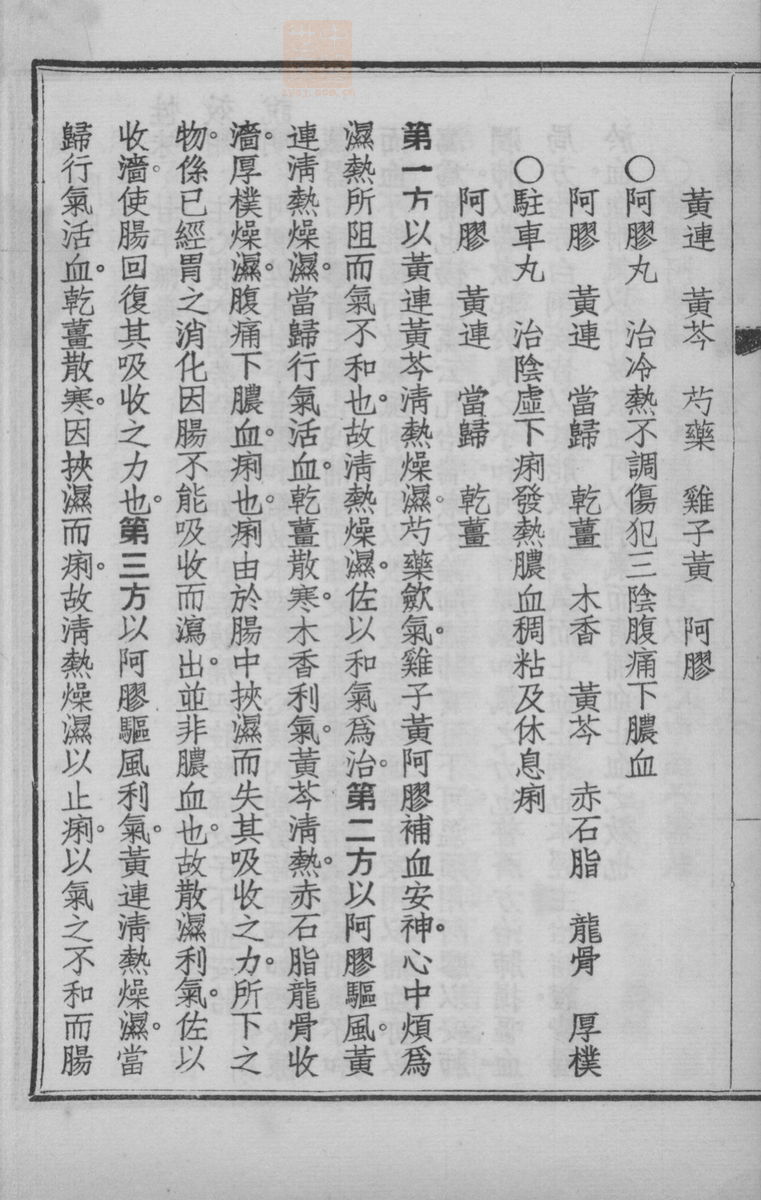 黃連　黃芩　芍藥　雞子黃　阿膠
〇阿膠丸　治冷熱不調傷犯三陰腹痛下膿血
阿膠　黃連　當歸　乾薑　木香　黃芩　赤石脂　龍骨　厚樸
〇駐車丸　治陰虛下痢發熱膿血稠粘及休息痢
阿膠　黃連　當歸　乾薑
第一方以黃連黃芩淸熱燥濕。芍藥歛氣。雞子黃阿膠補血安神。心中煩爲
濕熱所阻。而氣不和也。故淸熱燥濕。佐以和氣爲治。第二方以阿膠驅風。黃
連淸熱燥濕。當歸行氣活血。乾薑散寒。木香利氣。黃芩淸熱。赤石脂龍骨收
濇。厚樸燥濕。腹痛下膿血。痢也。痢由於腸中挾濕而失其吸收之力。所下之
物。係已經胃之消化因腸不能吸收而瀉出。並非膿血也。故散濕利氣。佐以
收濇。使腸回復其吸收之力也。第三方以阿膠驅風利氣。黃連淸熱燥濕。當
歸行氣活血。乾薑散寒。因挾濕而痢。故淸熱燥濕以止痢。以氣之不和而腸